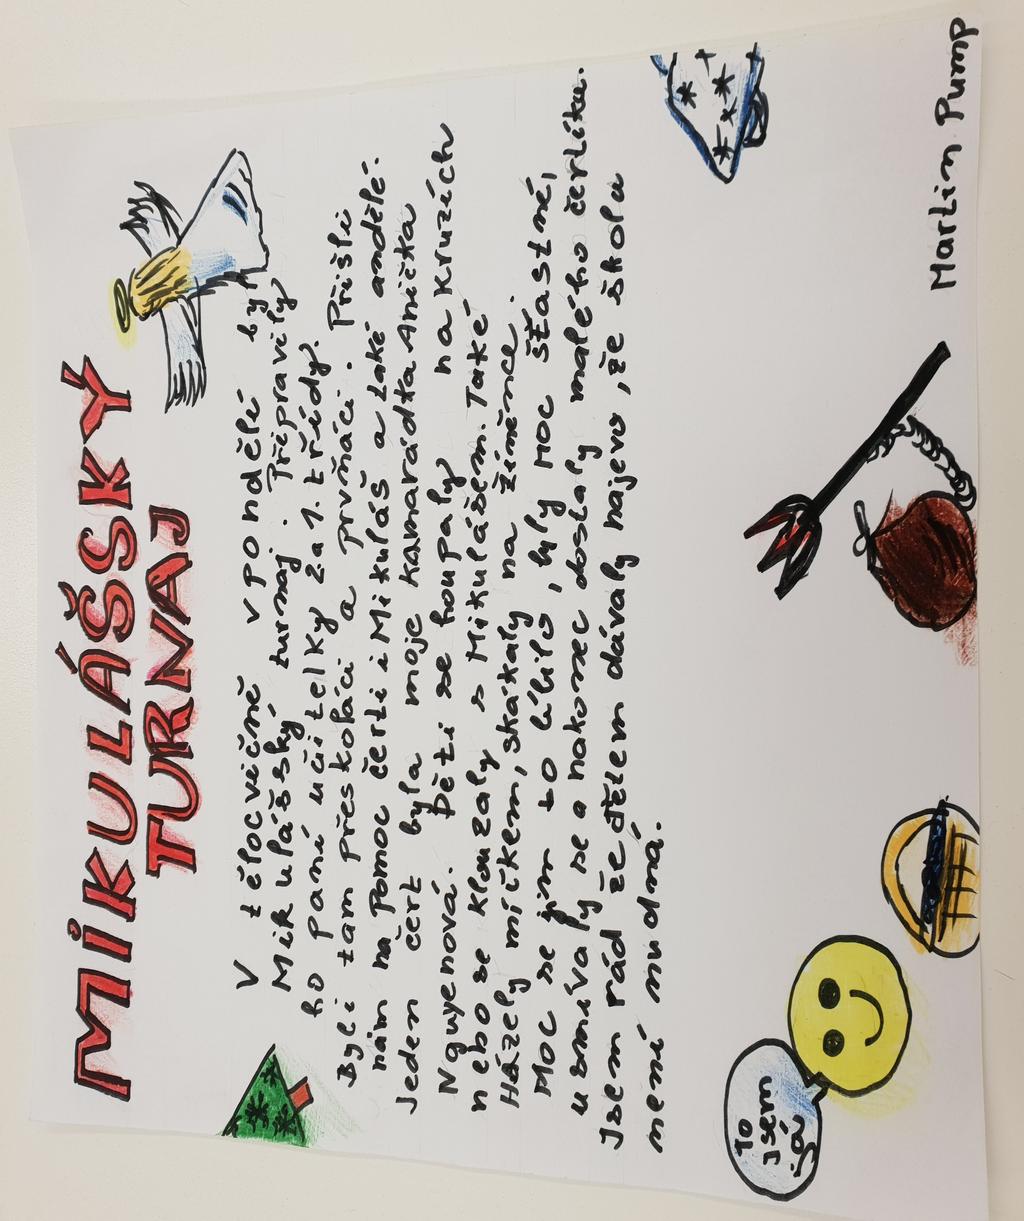 MIKULÁŠSKÝ
TURNAJ
V tělocvičně v pondělí by
Mikulášský turnaj. Připravily
ho paní učitelky 2a 1. třídy.
Byli tam přeskoláci a prvňáci. Přišli
nám na pomoc čerti i Mikuláš a také andělé.
Jeden čert byla moje kamarádka Anička
Nguyenová. Děti se houpaly na kruzích
nebo se klouzaly s Mikulášem. Také
Házely míčkem, skákaly na žíněnce.
Moc se jim to líbilo, byly moc šťastné,
usmívaly se a nakonec dostaly malého čertíka.
Jsem rád že dětem dávaly najevo, že škola
není nudná.
To
jsem
já
Martin Pump